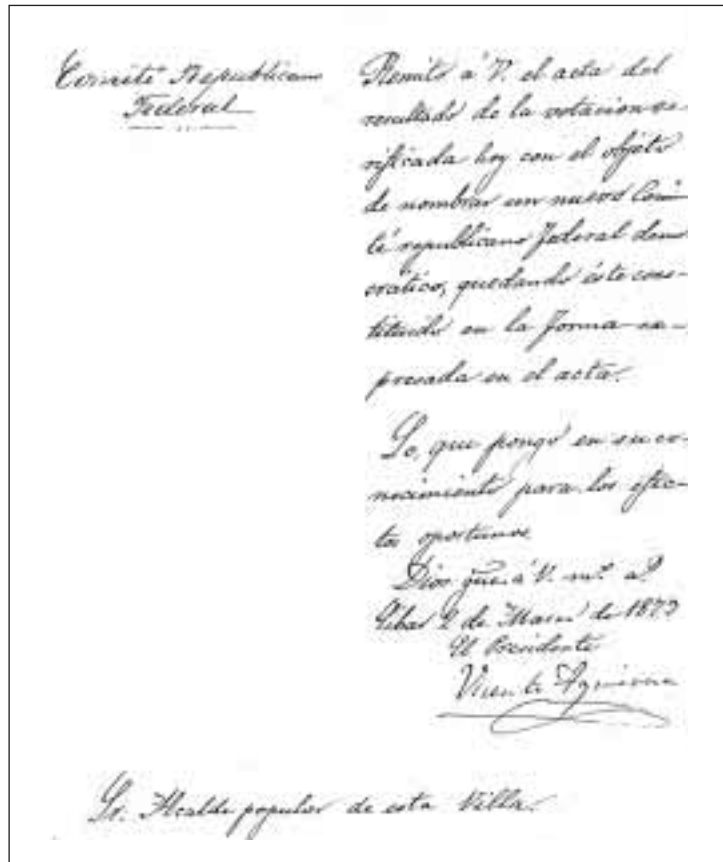 Comité Republicano
Federal
Remito á V. el acta del
resultado de la votacion ve-
rificada hoy con el objeto
de nombrar un nuevo Comi-
té republicano federal demo
cratico, quedando éste cons-
tituido en la forma ex-
presada en el acta.
Lo, que pongo en su co-
nocimiento para los efec-
tos oportunos
Dios gue. á V. ms. as.
Eibar 2 de Marzo de 1873
El Presidente
Vicente Aguirre
Sr. Alcalde popular de esta Villa.